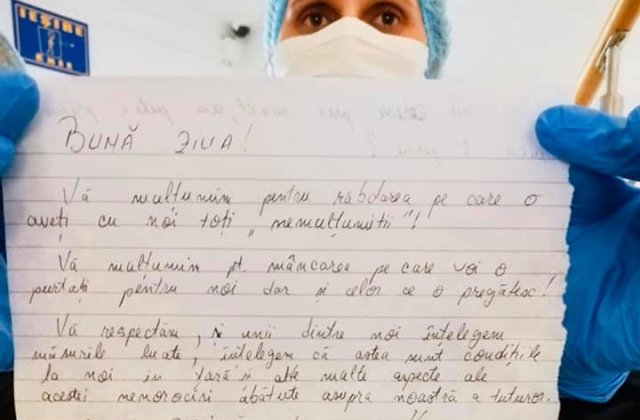 IEȘIRE
EXIT
BUNĂ ZIUA!
Vă mulțumim pentru răbdarea pe care o
aveți cu noi toți „nemulțumitii"!
Vă mulțumim pt. mâncarea pe care vă o
purtați pentru noi dar și celor ce o pregătesc!
Vă respectăm, și unii dintre noi înțelegem
măsurile luate, înțelegem că astea sunt condițiile
la noi în țară și alte multe aspecte ale
acestei nenorociri abătute asupra noastră a tuturor.